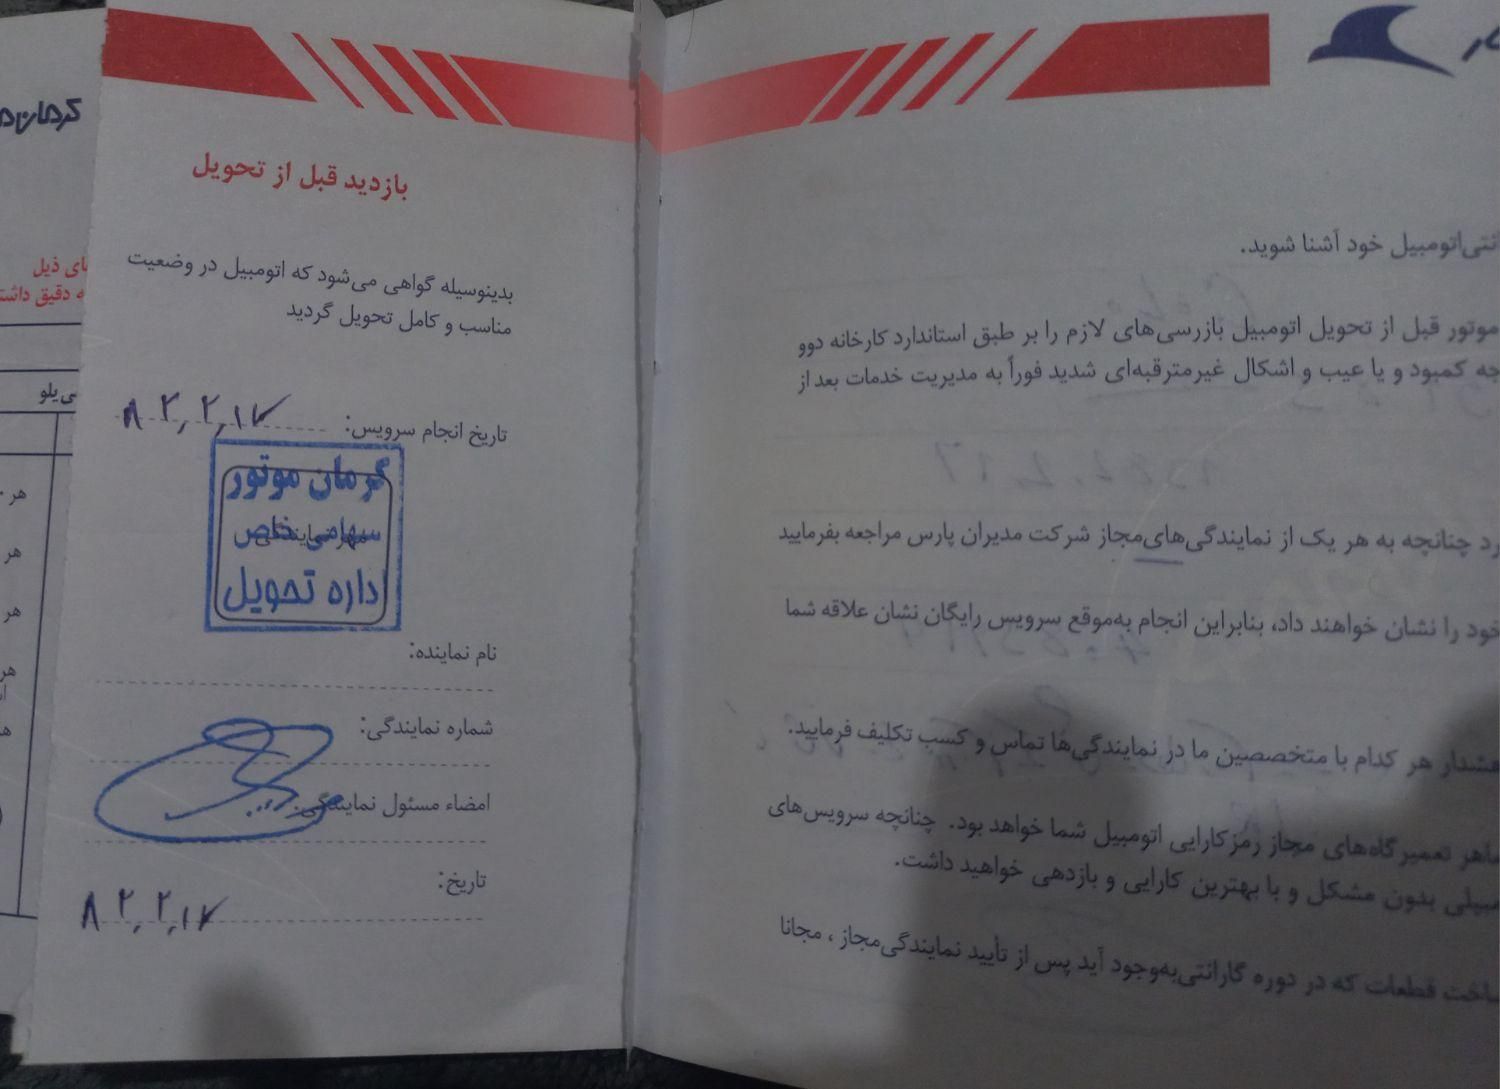 بازدید قبل از تحویل
بدینوسیله گواهی می‌شود که اتومبیل در وضعیت
مناسب و کامل تحویل گردید
تاریخ انجام سرویس: ۸۲,۲,۱۷
کرمان موتور
سهامی خاص
اداره تحویل
مهر نمایندگی
نام نماینده:
شماره نمایندگی:
امضاء مسئول نمایندگی:
تاریخ:
۸۲,۲,۱۷
اتومبیل خود آشنا شوید.
موتور قبل از تحویل اتومبیل بازرسی‌های لازم را بر طبق استاندارد کارخانه دوو
کمبود و یا عیب و اشکال غیرمترقبه‌ای شدید فوراً به مدیریت خدمات بعد از
چنانچه به هر یک از نمایندگی‌های‌مجاز شرکت مدیران پارس مراجعه بفرمایید
خود را نشان خواهند داد، بنابراین انجام به‌موقع سرویس رایگان نشان علاقه شما
هشدار هر کدام با متخصصین ما در نمایندگی‌ها تماس و کسب تکلیف فرمایید.
ماهر تعمیرگاه‌های مجاز رمزکارایی اتومبیل شما خواهد بود. چنانچه سرویس‌های
بدون مشکل و با بهترین کارایی و بازدهی خواهید داشت.
ساخت قطعات که در دوره گارانتی‌به‌وجود آید پس از تأیید نمایندگی‌مجاز ، مجانا
ذیل
دقیق
هر
هر
هر
هر